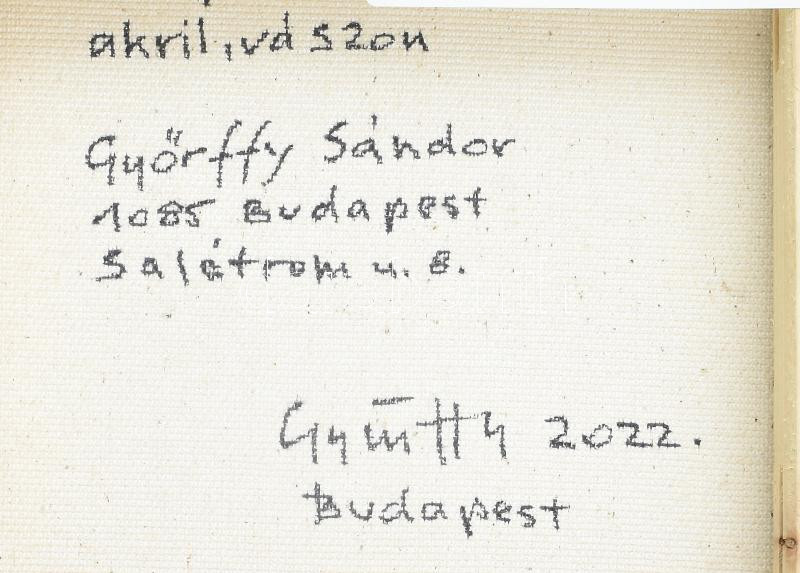 akril, vászon
Győrffy Sándor
1085 Budapest
Salétrom u. 8.
2022.
Budapest